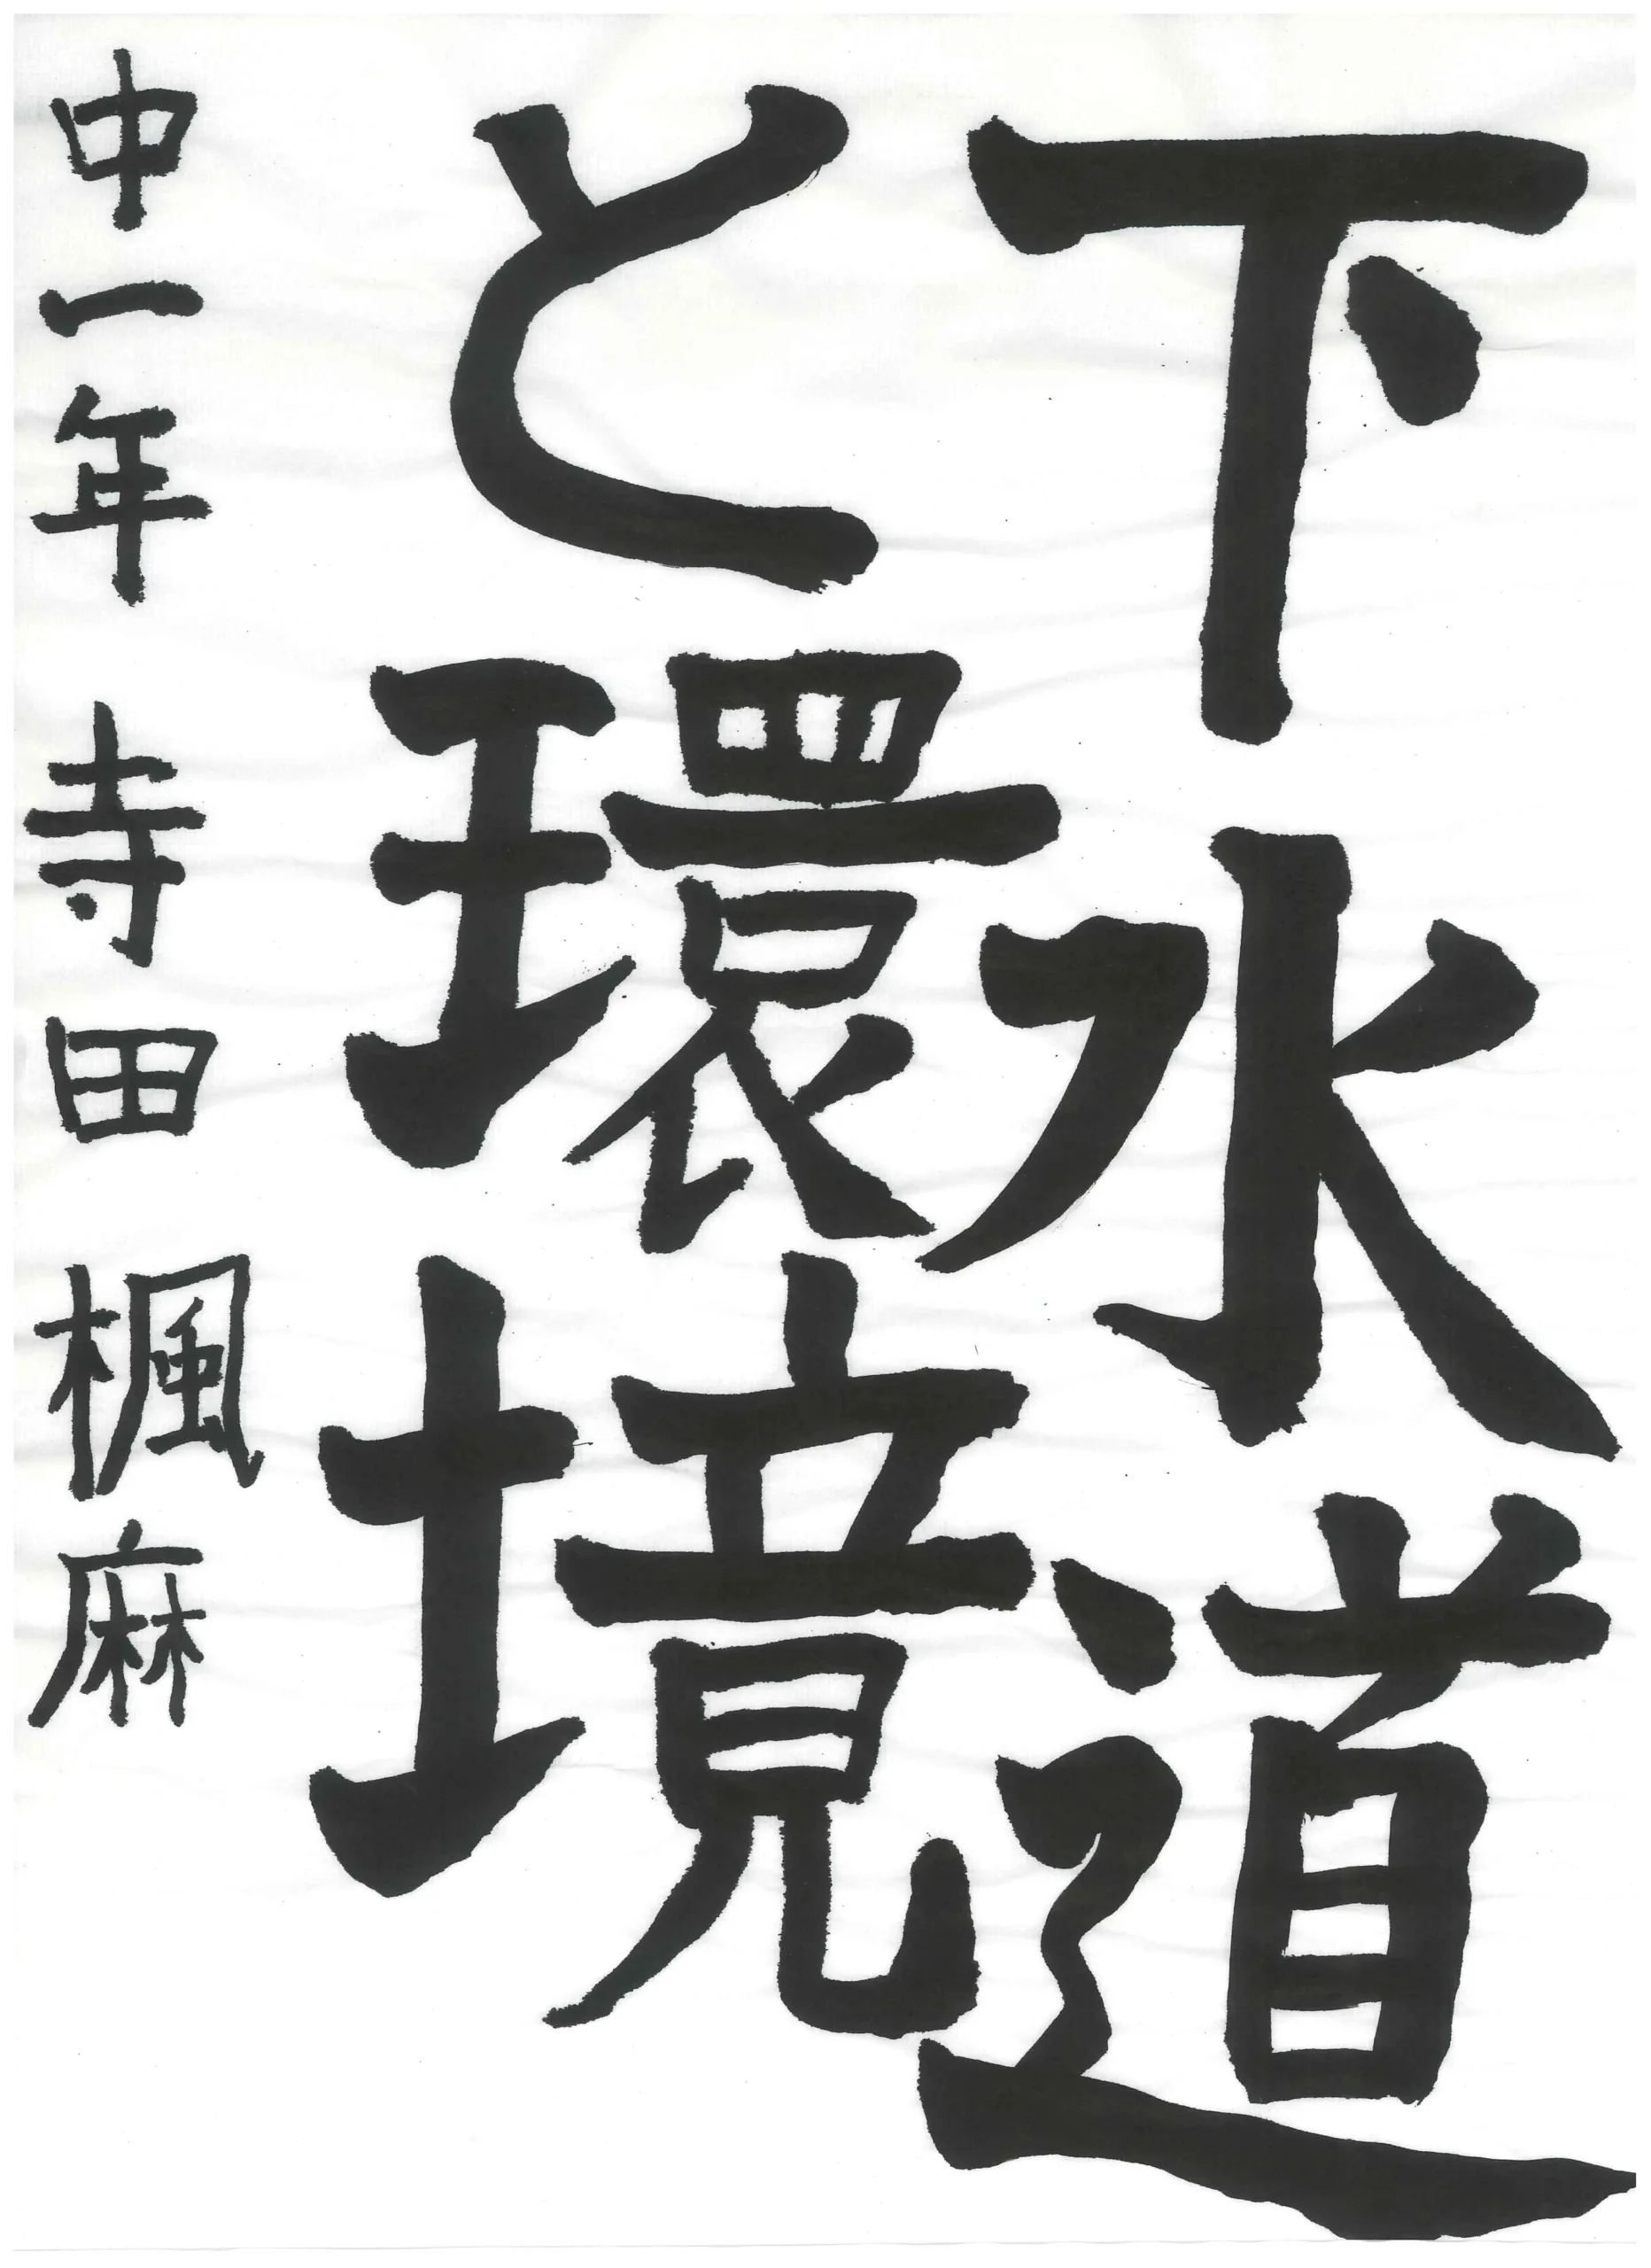 下水道
と環境
中一年 寺田楓麻